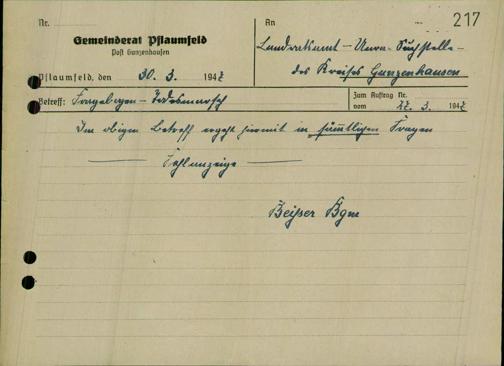 Nr.
217
Gemeinderat Pflaumfeld
Post Gunzenhausen
An
Landratsamt – Unra-Suchstelle –
des Kreises Gunzenhausen
Pflaumfeld, den 30. 3. 1947
Betreff: Fragebogen – Todesmarsch
Zum Auftrag Nr.
vom 27. 3. 1947
Im obigen Betreff ergeht hiermit in sämtlichen Fragen
Fehlanzeige
Beißer Bgm